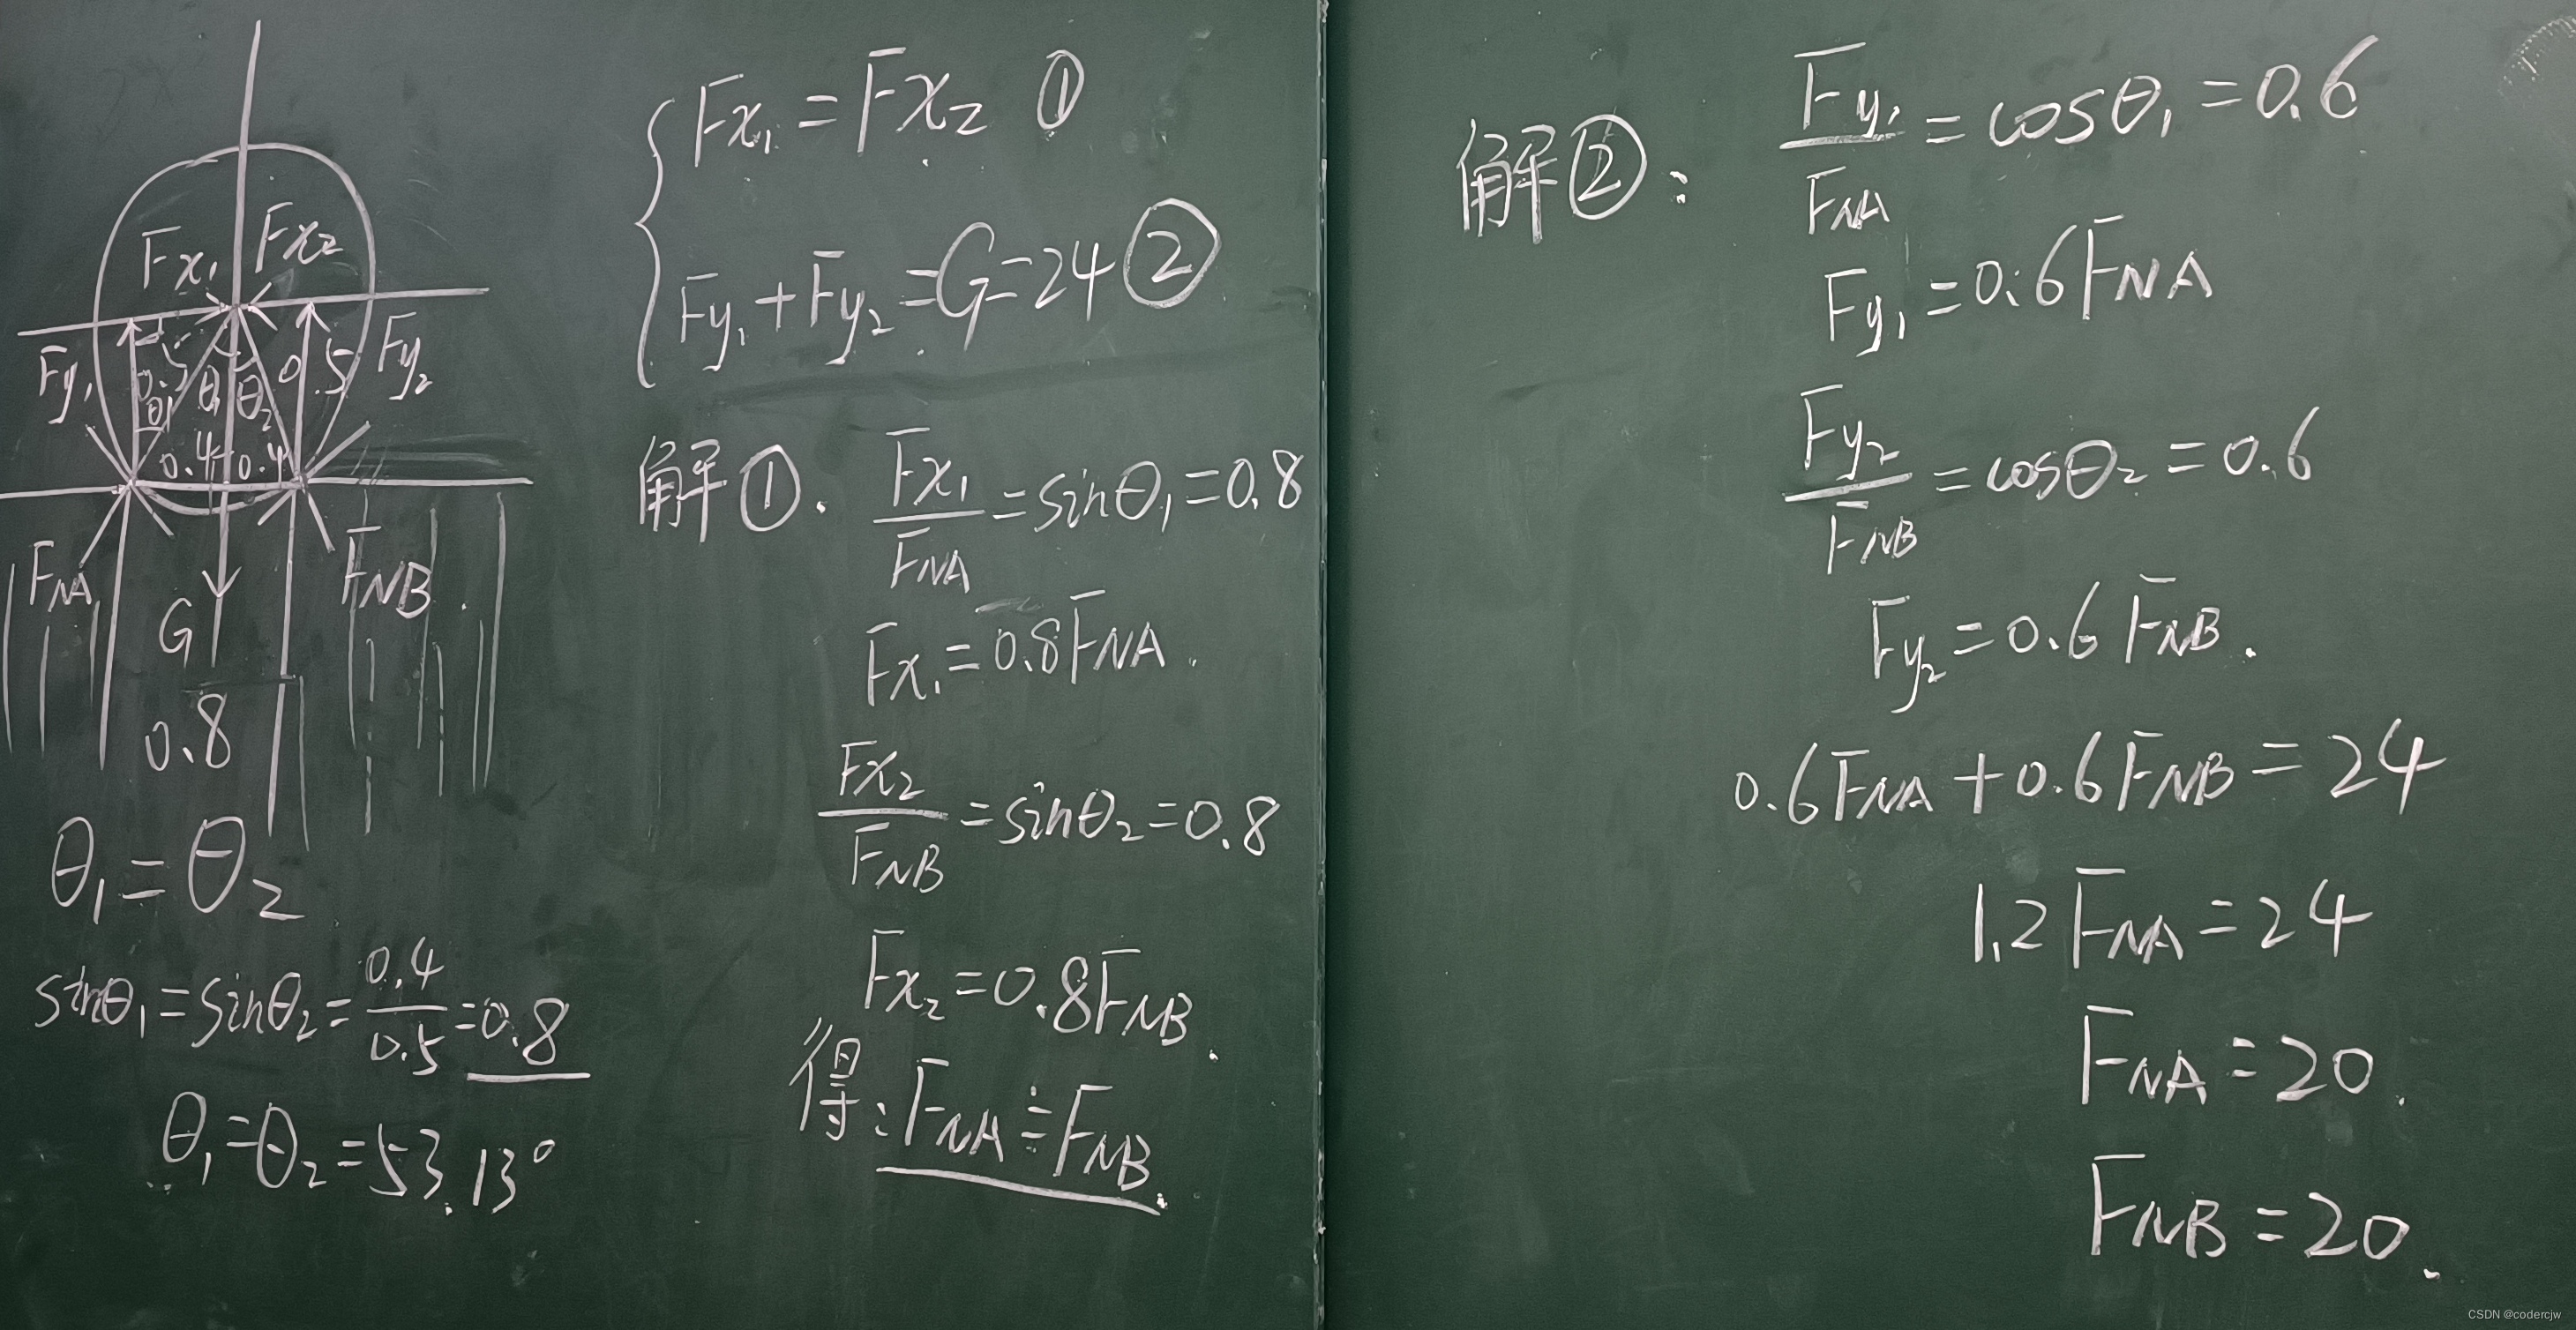 Fx₁ Fx₂
Fy₁ 0.5 θ₁ θ₁ θ₂ 0.5 Fy₂
0.4 0.4
F_NA F_NB
G
0.8
θ₁=θ₂
sinθ₁=sinθ₂=0.4/0.5=0.8
θ₁=θ₂=53.13°
Fx₁=Fx₂ ①
Fy₁+Fy₂=G=24 ②
解①. Fx₁/F_NA=sinθ₁=0.8
Fx₁=0.8F_NA.
Fx₂/F_NB=sinθ₂=0.8
Fx₂=0.8F_NB.
得:F_NA=F_NB.
解②: Fy₁/F_NA=cosθ₁=0.6
Fy₁=0.6F_NA
Fy₂/F_NB=cosθ₂=0.6
Fy₂=0.6F_NB.
0.6F_NA+0.6F_NB=24
1.2F_NA=24
F_NA=20.
F_NB=20.
CSDN @codercjw